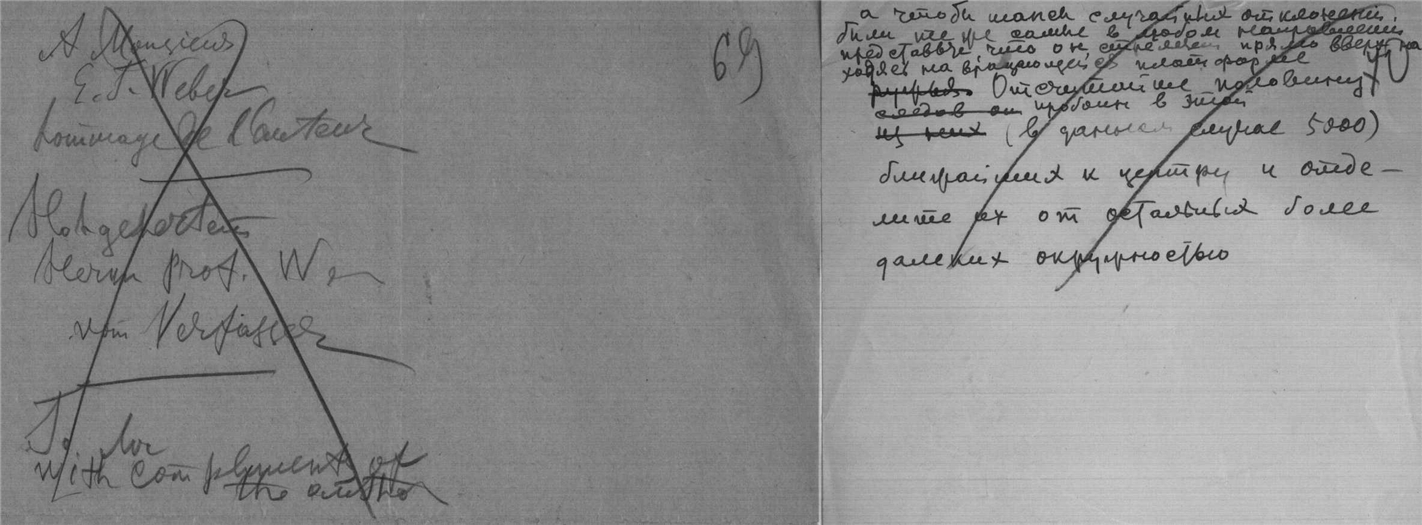 A Monsieur
E. T. Weber
hommage de l'auteur
Hochgeehrten
Herrn Prof. W
vom Verfasser
To
with compliments of
the author
69
а чтобы шансы случайных отклонений
были те же самые в любом направлении
представьте что он стреляет прямо вверх на
ходясь на вращающейся платформе
70
Отсчитайте половину
следов от пробоин в этой
из них (в данном случае 5000)
ближайших к центру и отде-
лите их от остальных более
далеких окружностью